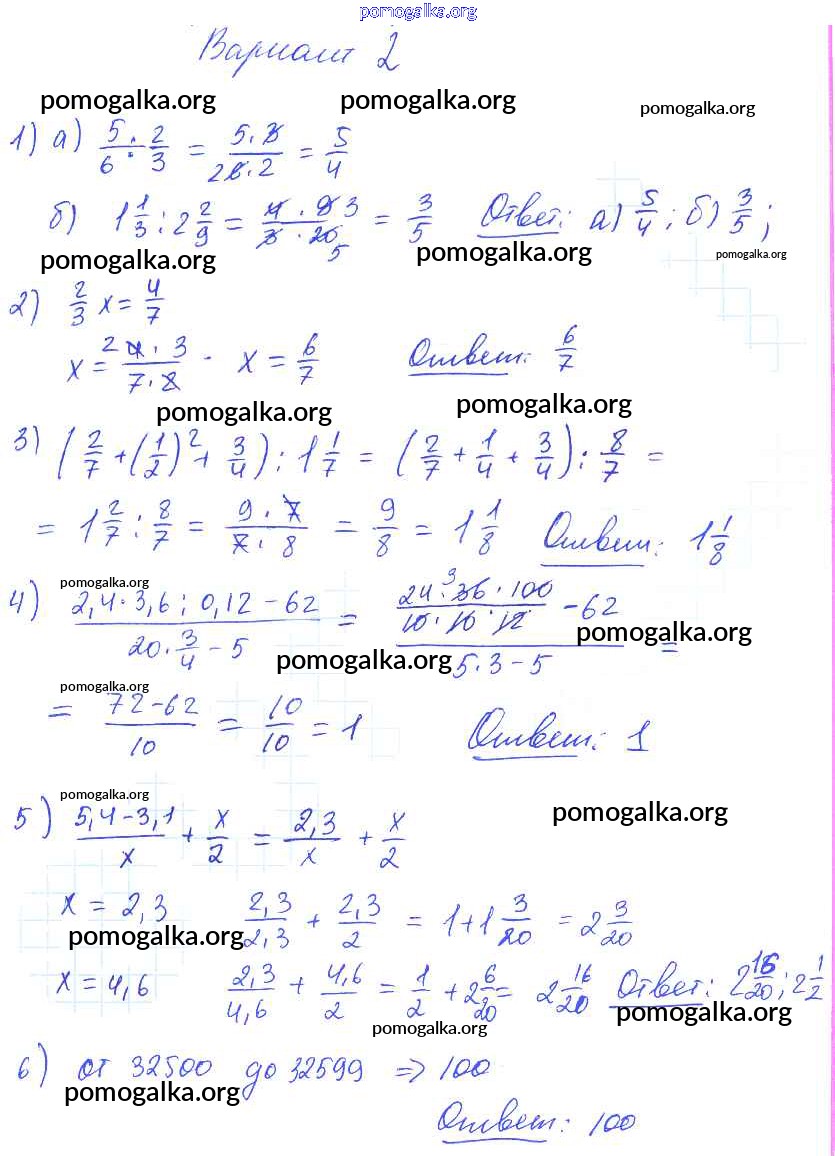 pomogalka.org
Вариант 2
pomogalka.org pomogalka.org pomogalka.org
1) а) 5/6 : 2/3 = 5·3/2 6·2 = 5/4
б) 1 1/3 : 2 2/9 = 4·9 3/3·20 5 = 3/5 Ответ: а) 5/4; б) 3/5;
pomogalka.org pomogalka.org pomogalka.org
2) 2/3 x = 4/7
x = 2 4·3/7·2 . x = 6/7 Ответ: 6/7
pomogalka.org pomogalka.org
3) (2/7 + (1/2)² + 3/4) : 1 1/7 = (2/7 + 1/4 + 3/4) : 8/7 =
= 1 2/7 : 8/7 = 9·7/7·8 = 9/8 = 1 1/8 Ответ: 1 1/8
pomogalka.org
4) (2,4·3,6:0,12-62)/(20·3/4-5) = (24·36 3·100/10·10·12 - 62)/(5·3-5) =
pomogalka.org pomogalka.org
pomogalka.org
= 72-62/10 = 10/10 = 1 Ответ: 1
pomogalka.org pomogalka.org
5) 5,4-3,1/x + x/2 = 2,3/x + x/2
x = 2,3 2,3/2,3 + 2,3/2 = 1+1 3/20 = 2 3/20
pomogalka.org
x = 4,6 2,3/4,6 + 4,6/2 = 1/2 + 2 6/20 = 2 16/20 Ответ: 2 16/20; 2 1/2
pomogalka.org pomogalka.org
6) от 32500 до 32599 => 100
pomogalka.org
Ответ: 100